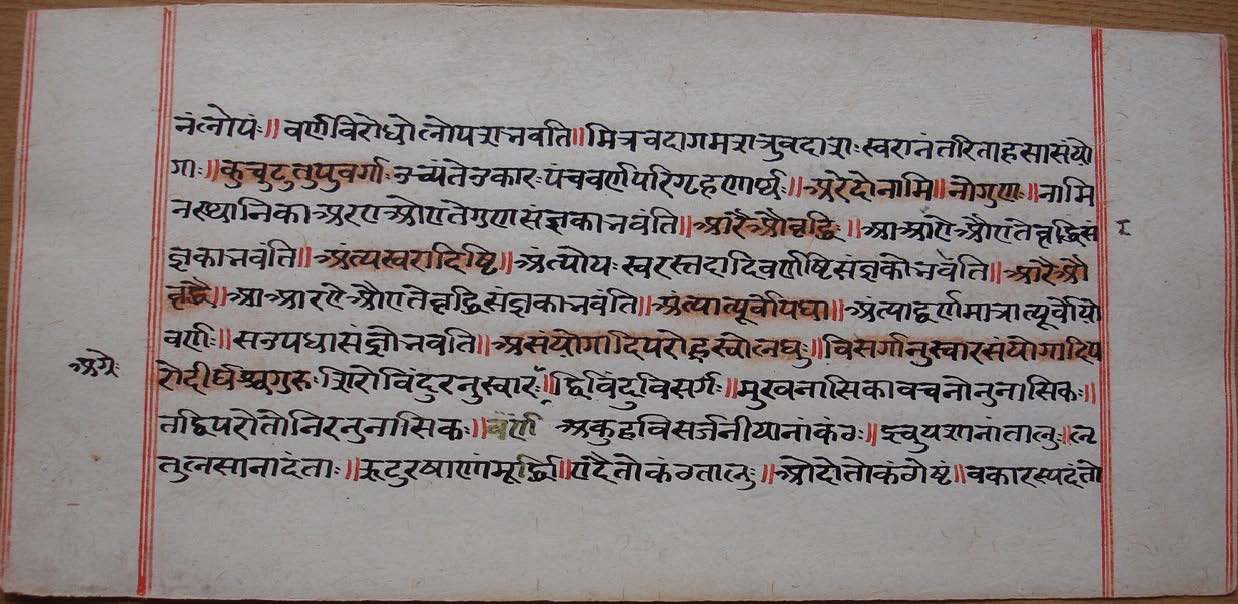 नंलोपं॥ वर्णविरोधोलोपशभवति॥ मित्रवदागमशत्रुवदाशः स्वरानंतरिताहसासंयो
गाः॥ कुचुटुतुपुवर्गाः उच्यंतेउकारः पंचवर्णपरिग्रहणार्थः॥ अरेदोनामि॥ नोगुणः॥ नामि
नस्थानिकाअरएओएतेगुणसंज्ञकाभवंति॥ आरैऔवृद्धिः॥ आआऐऔएतेवृद्धिसं
ज्ञकाभवंति॥ अंत्यस्वरादिष्टि॥ अंत्योयः स्वरस्तदादिवर्णष्टिसंज्ञकोभवति॥ आरैऔ
वृद्धै॥ आआरऐऔएतेवृद्धिसंज्ञकाभवंति॥ अंत्यात्पूर्वोपधा॥ अंत्याद्वर्णमात्रात्पूर्वोयो
वर्णः॥ सउपधासंज्ञोभवति॥ असंयोगादिपरोह्रस्वोलघुः॥ विसर्गानुस्वारसंयोगादिप
अग्रे
रोदीर्घश्चगुरुः शिरोविंदुरनुस्वारः॥ द्विविंदुविसर्गः॥ मुखनासिकावचनोनुनासिकः॥
तद्विपरोतोनिरनुनासिकः॥ वर्ण अकुहविसर्जनीयानांकंठः॥ इचुयशानांतालुः॥ लृ
तुलसानादंताः॥ ऋटुरषाणांमूर्द्धा॥ एदैतोकंठतालुः॥ ओदोतोकंठोष्टं॥ वकारस्यदंतो